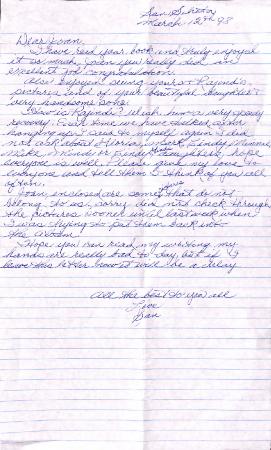 San
March 18th 93
Dear Joan.
I have read your book and truly enjoyed
it so much, Joan you really did an
excellent job congratulations.
Also enjoyed seeing yours &
pictures and of your beautiful daughters
very handsome
How is wish him a very speedy
recovery. Each time we have talked, after
hanging up I said to myself again I did
not ask about Gloria, Mark, Cindy
Mike, daughters, hope
everyone is well. Please give my love to
everyone and tell them I think of you all
often.
Joan enclosed are some that do not
belong to us, sorry did not check through
the pictures sooner until last week when
I was trying to put them back into
the album.
Hope you can read my writing my
hands are really bad to day, but if I
leave this letter now it will be a delay
All the best to you all
Love